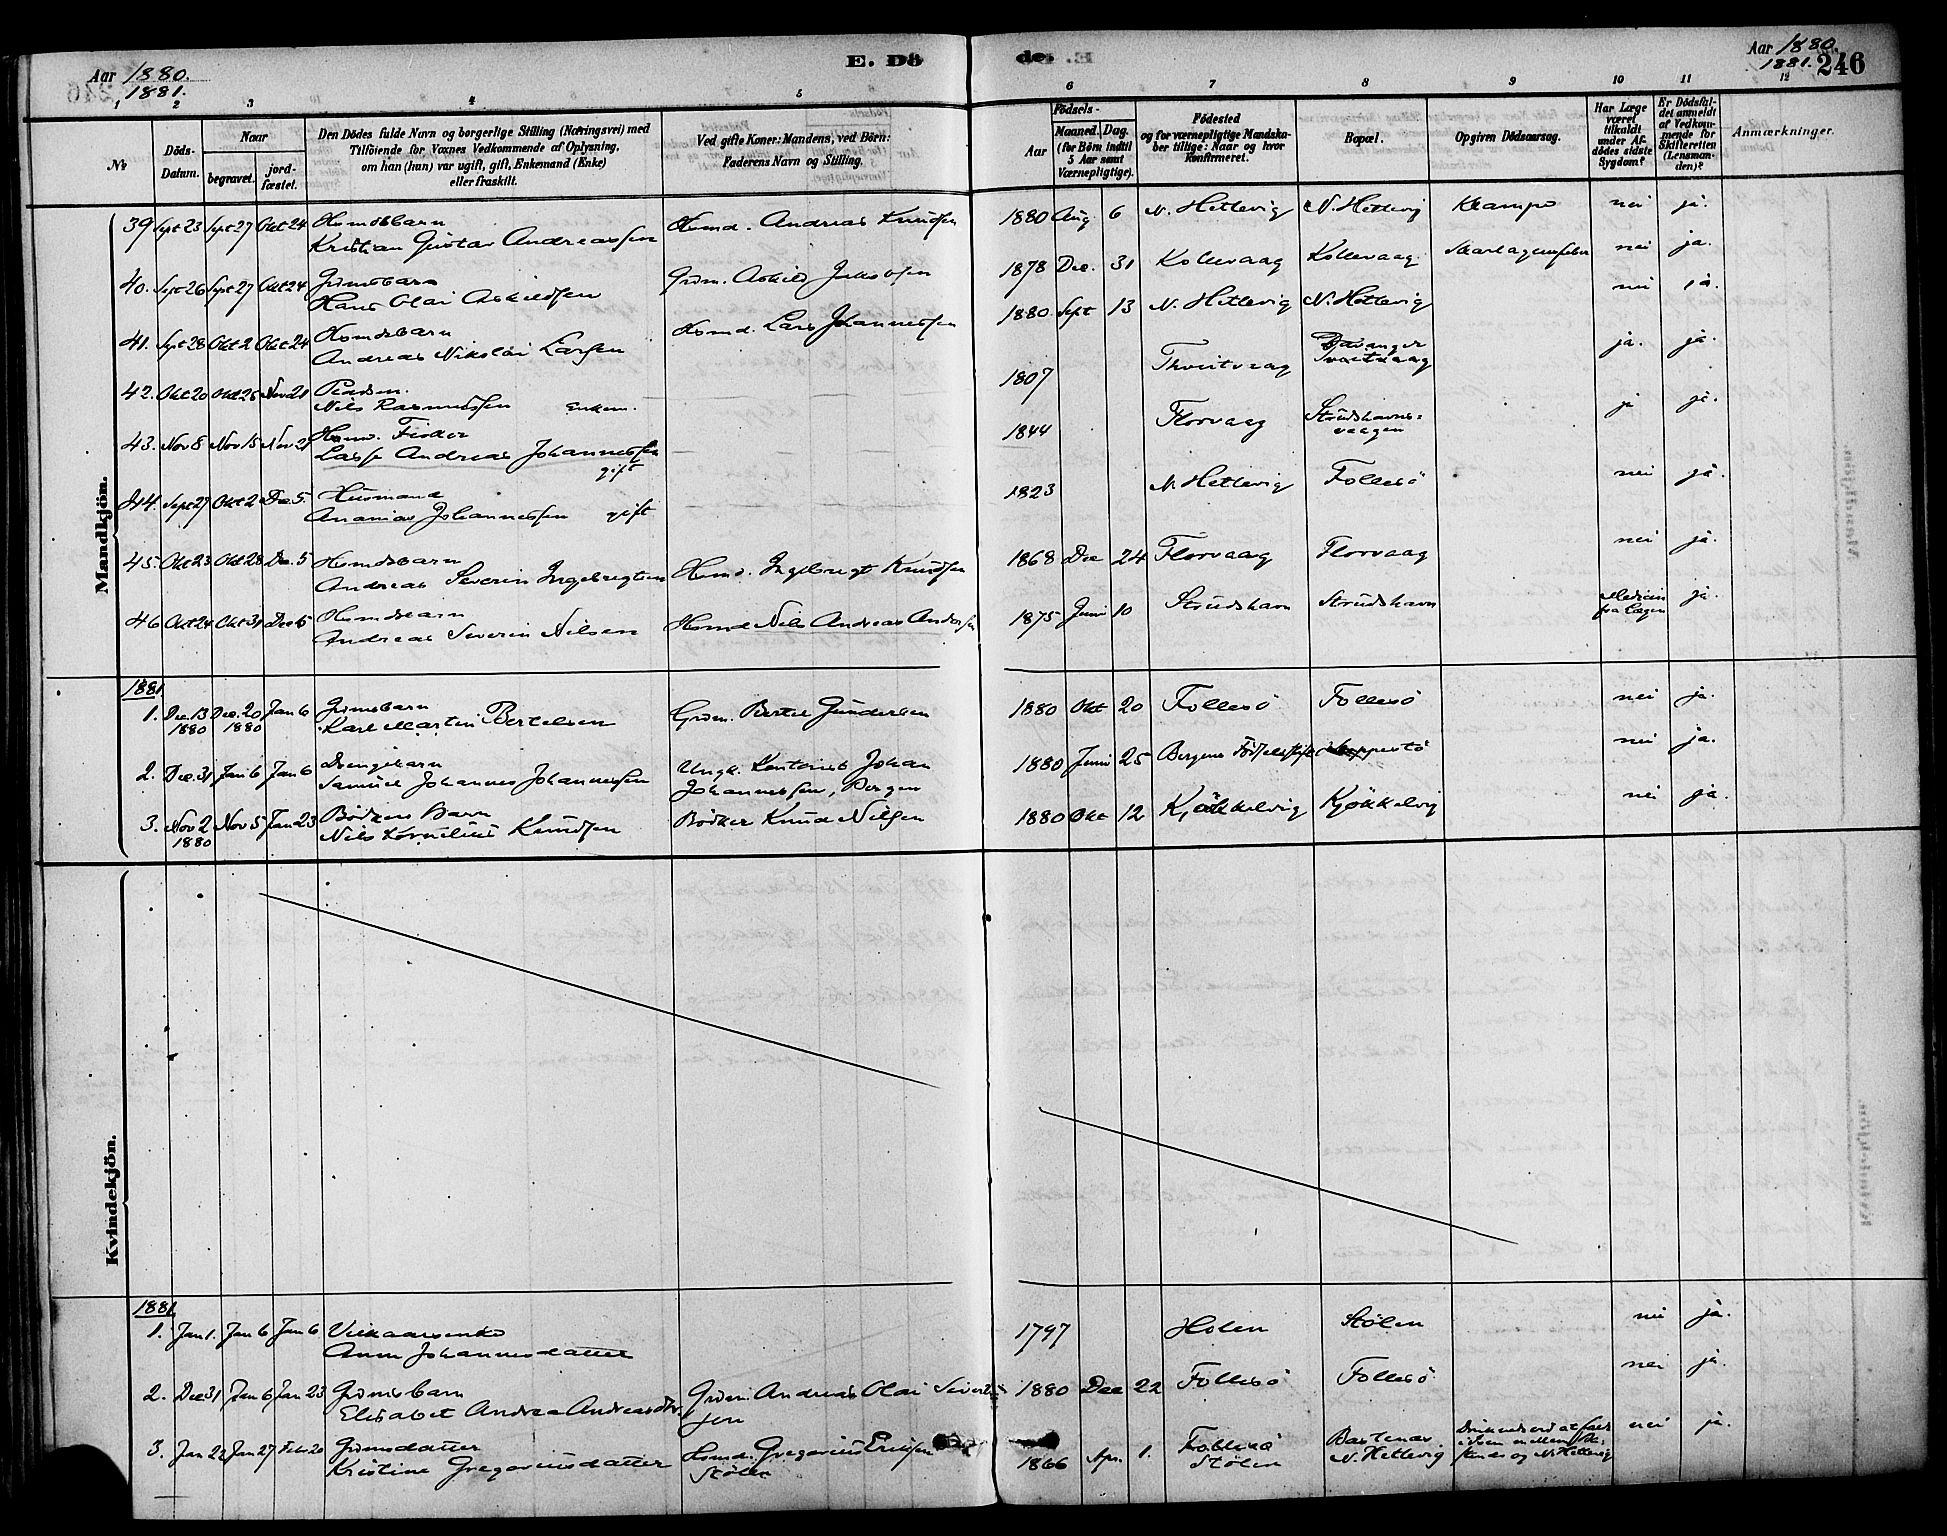 Aar 1880.
1881.
E. Dö
de.
Aar 1880.
1881.
246
1
2
3
4
5
6
7
8
9
10
11
12
№
Döds-Datum.
Naar
begravet.
jord-fæstet.
Den Dödes fulde Navn og borgerlige Stilling (Næringsvei) med
Tilföiende for Voxnes Vedkommende af Oplysning,
om han (hun) var ugift, gift, Enkemand (Enke)
eller fraskilt.
Ved gifte Koner: Mandens, ved Börn:
Faderens Navn og Stilling.
Födsels-
Aar
Maaned. Dag.
(for Börn indtil
5 Aar samt
Værnepligtige).
Födested
og for værnepligtige Mandska-
ber tillige: Naar og hvor
Konfirmeret.
Bopæl.
Opgiven Dödsaarsag.
Har Læge
været
tilkaldt
under Af-
dödes sidste
Sygdom?
Er Dödsfal-
det anmeldt
af Vedkom-
mende for
Skifteretten
(Lensman-
den)?
Anmærkninger.
Mandkjön.
39 Sept 23 Sept 27 Okt 24 Hsmdsbarn Kristian Gustav Andreassen Hsmd. Andreas Knudsen 1880 Aug 6 N. Hetlevig N. Hetlevig Krampe nei ja.
40. Sept 26 Sept 27 Okt 24 Grmsbarn Hans Olai Askildsen Grm. Askild Jakobsen 1878 Dec. 31 Kollevaag Kollevaag Skarlagensfeber nei ja.
41. Sept 28 Okt 2 Okt 24 Hsmdsbarn Andreas Nikolai Larsen Hsmd. Lars Johannessen 1880 Sept 13 N. Hetlevig N. Hetlevig nei ja.
42. Okt 20 Okt 26 Nov 21 Nils Rasmussen Enkem. 1807 Thveitvaag Tveitvaag ja. ja.
43. Nov 8 Nov 15 Nov 21 Lasse Andreas Johannessen gift 1844 Florvaag Strudshavns-
vaagen ja ja.
44. Sept 27 Okt 2 Dec 5. Husmand Ananias Johannessen gift 1823 N. Hetlevig Follesö nei ja.
45. Okt 23 Okt 28 Dec 5 Hsmdsbarn Andreas Severin Ingebrigtsen Hsmd. Ingebrigt Knudsen 1868 Dec 24 Florvaag Florvaag nei ja.
46 Okt 24 Okt 31 Dec 5 Hsmdsbarn Andreas Severin Nilsen Hsmd Nils Andreas Andersen 1875 Juni 10 Strudshavn Strudshavn Medicin
fra Lægen ja.
1881
1. Dec. 13 1880 Dec. 20 1880 Jan 6 Grmsbarn Karl Martin Bertelsen Grm. Bertel Gundersen 1880 Okt 20 Follesö Follesö nei ja.
2. Dec. 31 Jan 6 Jan 6 Drengebarn Samuel Johannes Johannessen Ungk. Kontorist Johan
Johannessen, Bergen 1880 Juni 25 Bergens Födselsstift. nei ja.
3. Nov 2 1880 Nov 5 Jan 23 Bödkers Barn Nils Kornelius Knudsen Bödker Knud Nilsen 1880 Okt 12 Kjökkelvig Kjökkelvig nei ja.
Kvindekjön.
1881
1. Jan 1. Jan 6 Jan 6 Anna Johannesdatter 1797 Holen Stölen nei ja.
2. Dec 31 Jan 6 Jan 23 Grmsbarn Elisabet Andrea Andreasdtr. Grm. Andreas Olai Sivert-
sen 1880 Dec 22 Follesö Follesö nei ja.
3. Jan 22 Jan 27 Febr 20 Grmsdatter Kristine Gregoriusdatter Hsmd. Gregorius Eriksen
Stölen 1866 Apr. 1. Follesö
Stölen N. Hetlevig nei ja.